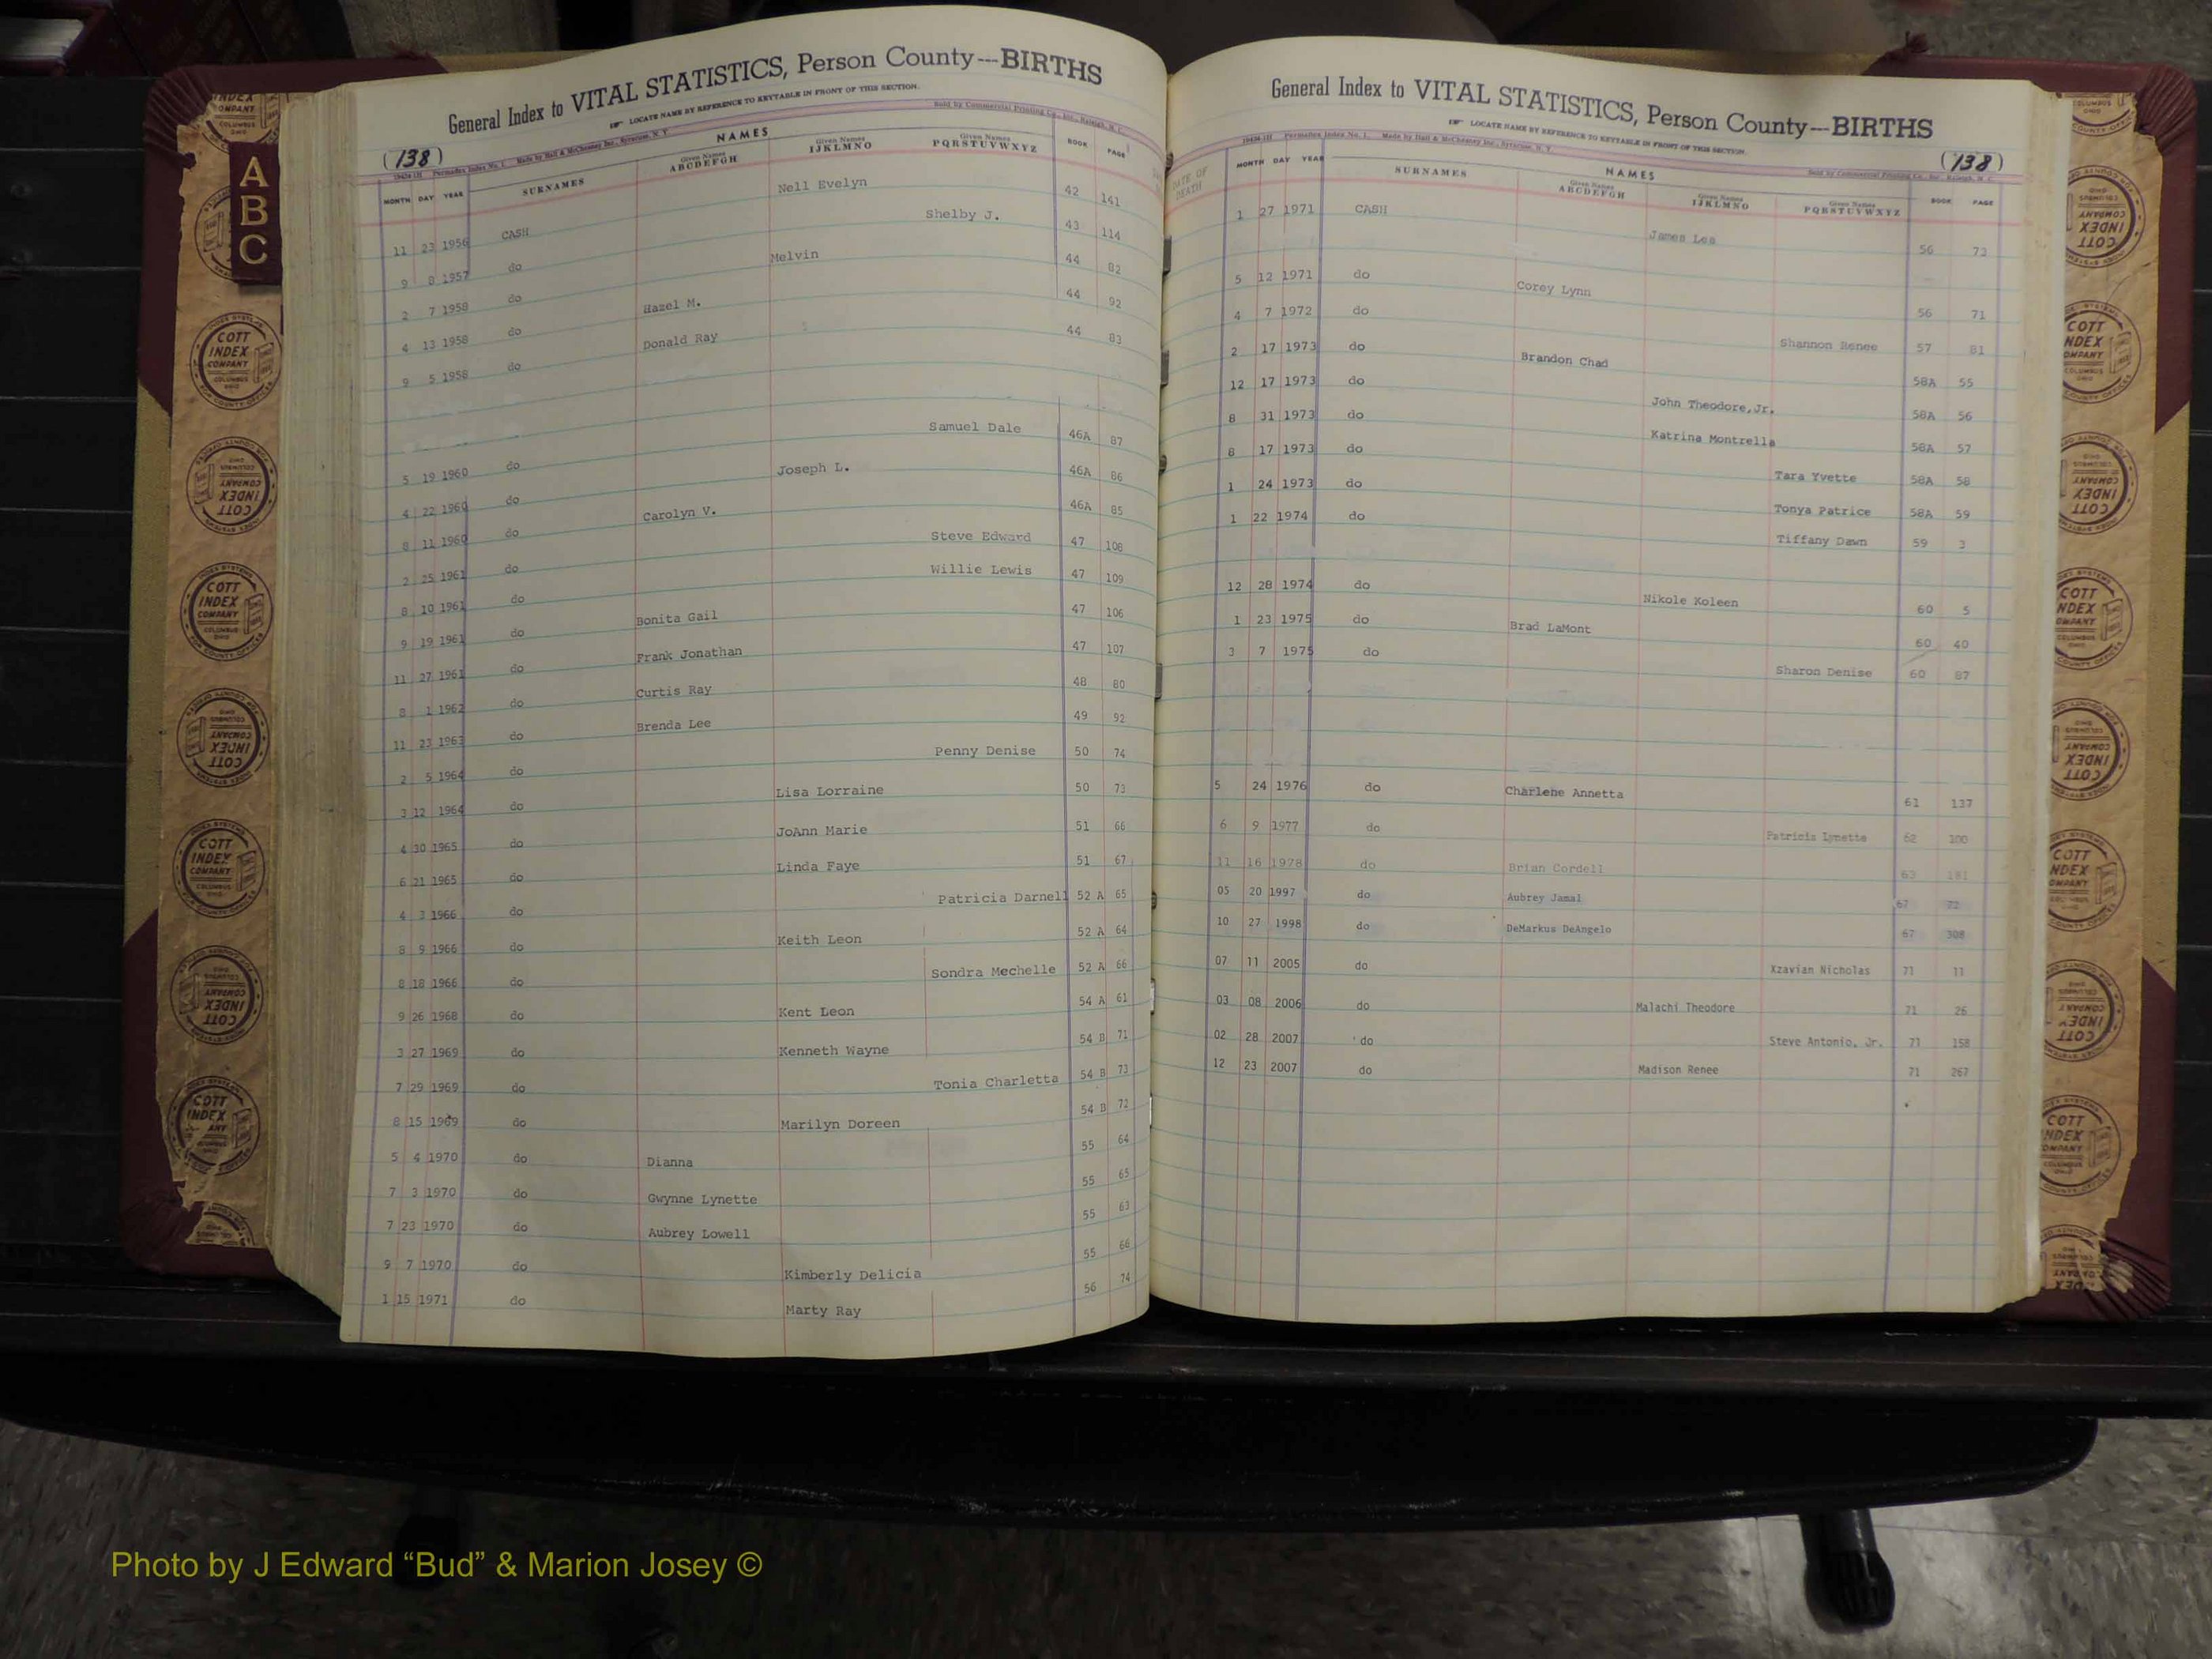 General Index to VITAL STATISTICS, Person County---BIRTHS
LOCATE NAME BY REFERENCE TO KEYTABLE IN FRONT OF THIS SECTION.
Sold by Commercial Printing Co., Inc., Raleigh, N. C.
(138)
Permadex Index No. 1. Made by Hall & McChesney Inc., Syracuse, N. Y.
NAMES
MONTH DAY YEAR SURNAMES Given Names ABCDEFGH Given Names IJKLMNO Given Names PQRSTUVWXYZ BOOK PAGE
11 23 1956 CASH Nell Evelyn 42 141
9 8 1957 do Shelby J. 43 114
2 7 1958 do Melvin 44 82
4 13 1958 do Hazel M. 44 92
9 5 1958 do Donald Ray 44 83
5 19 1960 do Samuel Dale 46A 87
4 22 1960 do Joseph L. 46A 86
8 11 1960 do Carolyn V. 46A 85
2 25 1961 do Steve Edward 47 108
8 10 1961 do Willie Lewis 47 109
9 19 1961 do Bonita Gail 47 106
11 27 1961 do Frank Jonathan 47 107
8 1 1962 do Curtis Ray 48 80
11 23 1963 do Brenda Lee 49 92
2 5 1964 do Penny Denise 50 74
3 12 1964 do Lisa Lorraine 50 73
4 30 1965 do JoAnn Marie 51 66
6 21 1965 do Linda Faye 51 67
4 3 1966 do Patricia Darnell 52 A 65
8 9 1966 do Keith Leon 52 A 64
8 18 1966 do Sondra Mechelle 52 A 66
9 26 1968 do Kent Leon 54 A 61
3 27 1969 do Kenneth Wayne 54 B 71
7 29 1969 do Tonia Charletta 54 B 73
8 15 1969 do Marilyn Doreen 54 B 72
5 4 1970 do Dianna 55 64
7 3 1970 do Gwynne Lynette 55 65
7 23 1970 do Aubrey Lowell 55 63
9 7 1970 do Kimberly Delicia 55 66
1 15 1971 do Marty Ray 56 74
General Index to VITAL STATISTICS, Person County---BIRTHS
LOCATE NAME BY REFERENCE TO KEYTABLE IN FRONT OF THIS SECTION.
(138)
Permadex Index No. 1. Made by Hall & McChesney Inc., Syracuse, N. Y.
Sold by Commercial Printing Co., Inc., Raleigh, N. C.
NAMES
DATE OF DEATH
MONTH DAY YEAR SURNAMES Given Names ABCDEFGH Given Names IJKLMNO Given Names PQRSTUVWXYZ BOOK PAGE
1 27 1971 CASH James Lee 56 73
5 12 1971 do Corey Lynn 56 71
4 7 1972 do Shannon Renee 57 81
2 17 1973 do Brandon Chad 58A 55
12 17 1973 do John Theodore,Jr. 58A 56
8 31 1973 do Katrina Montrella 58A 57
8 17 1973 do Tara Yvette 58A 58
1 24 1973 do Tonya Patrice 58A 59
1 22 1974 do Tiffany Dawn 59 3
12 28 1974 do Nikole Koleen 60 5
1 23 1975 do Brad LaMont 60 40
3 7 1975 do Sharon Denise 60 87
5 24 1976 do Charlene Annetta 61 137
6 9 1977 do Patricia Lynette 62 100
11 16 1978 do Brian Cordell 63 181
05 20 1997 do Aubrey Jamal 67 72
10 27 1998 do DeMarkus DeAngelo 67 308
07 11 2005 do Xzavian Nicholas 71 11
03 08 2006 do Malachi Theodore 71 26
02 28 2007 do Steve Antonio, Jr. 71 158
12 23 2007 do Madison Renee 71 267
A
B
C
COTT
INDEX
COMPANY
COLUMBUS
OHIO
INDEX SYSTEMS
FOR COUNTY OFFICES
Photo by J Edward “Bud” & Marion Josey ©